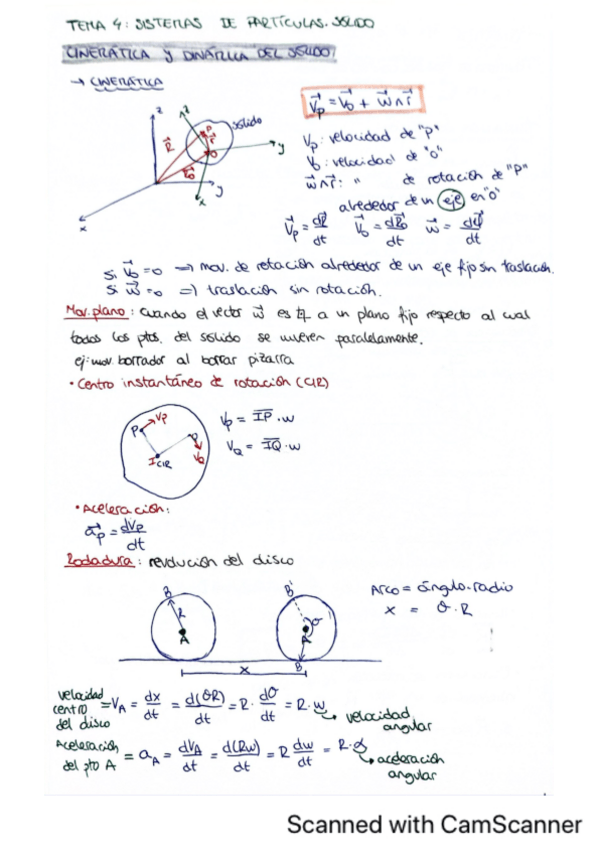 TEMA 4: SISTEMAS DE PARTÍCULAS. SÓLIDO
CINEMÁTICA Y DINÁMICA DEL SÓLIDO
→ CINEMÁTICA
V⃗p = V⃗o + w⃗ ∧ r⃗
z
z
P
sólido
R⃗
r⃗
O
y
r⃗o
y
x
x
Vp: velocidad de "P"
Vo: velocidad de "O"
w⃗∧r⃗: " de rotación de "P"
alrededor de un eje en "O"
V⃗p = dR⃗/dt V⃗o = dR⃗o/dt w⃗ = dφ⃗/dt
Si V⃗o = 0 => mov. de rotación alrededor de un eje fijo sin traslación.
Si w⃗ = 0 => traslación sin rotación.
Mov. plano: cuando el vector w⃗ es a un plano fijo respecto al cual
todos los ptos. del sólido se mueven paralelamente.
ej: mov. borrador al borrar pizarra
• Centro instantáneo de rotación (CIR)
P
Vp
Q
VQ
I CIR
Vp = IP · w
VQ = IQ · w
• Aceleración:
a⃗p = dVp/dt
Rodadura: revolución del disco
B
R
A
B'
θ
A
B
x
Arco = ángulo · radio
x = θ · R
velocidad centro del disco = VA = dx/dt = d(θR)/dt = R · dθ/dt = R · w → velocidad angular
Aceleración del pto A = aA = dVA/dt = d(Rw)/dt = R dw/dt = R · α → aceleración angular
Scanned with CamScanner